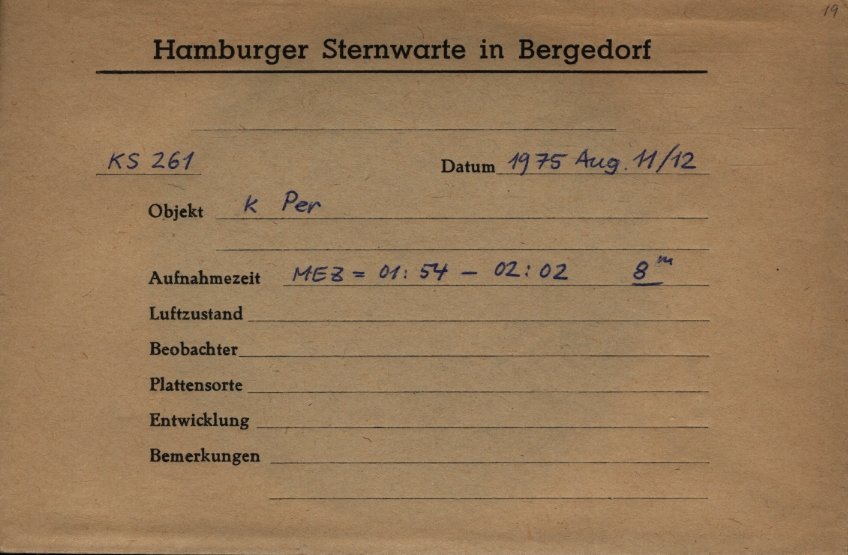 19
Hamburger Sternwarte in Bergedorf
KS 261 Datum 1975 Aug. 11/12
Objekt κ Per
Aufnahmezeit MEZ = 01:54 – 02:02 8ᵐ
Luftzustand
Beobachter
Plattensorte
Entwicklung
Bemerkungen